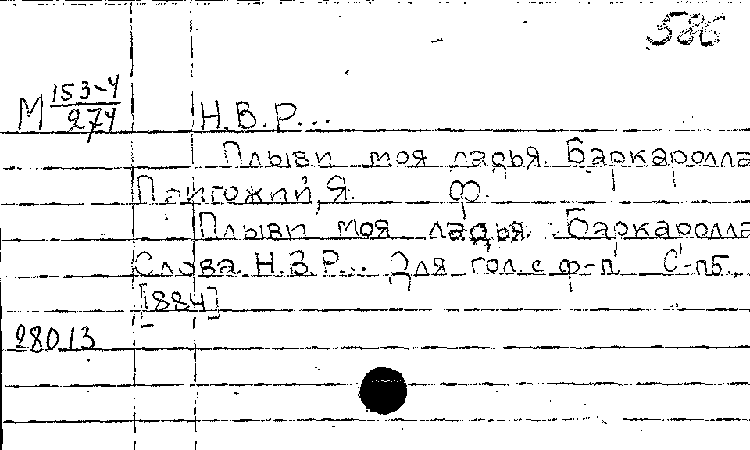 586
М 153-4/274 Н.В.Р...
Плыви моя ладья. Баркаролла
Пригожий, Я. Ф.
Плыви моя ладья. Баркаролла
Слова Н.В.Р... Для гол. с ф-п С-пб.
[884]
28013